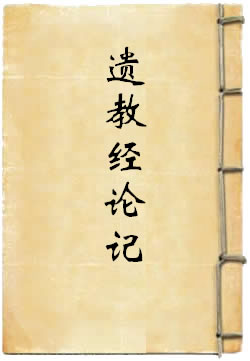 遗教经论记